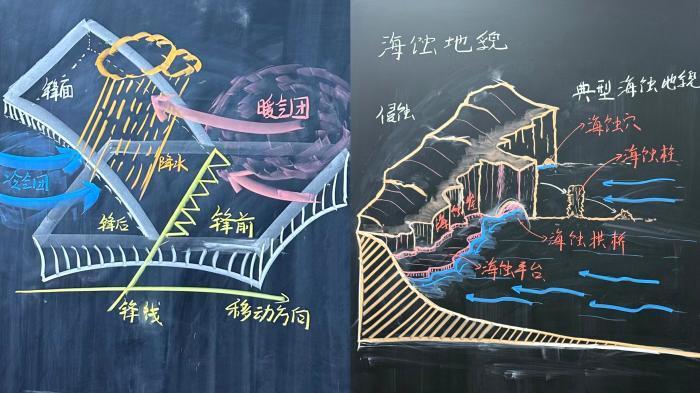 锋面
暖气团
冷气团
降水
锋后
锋前
锋线
移动方向
海蚀地貌
侵蚀
典型海蚀地貌
海蚀穴
海蚀柱
海蚀崖
海蚀拱桥
海蚀平台